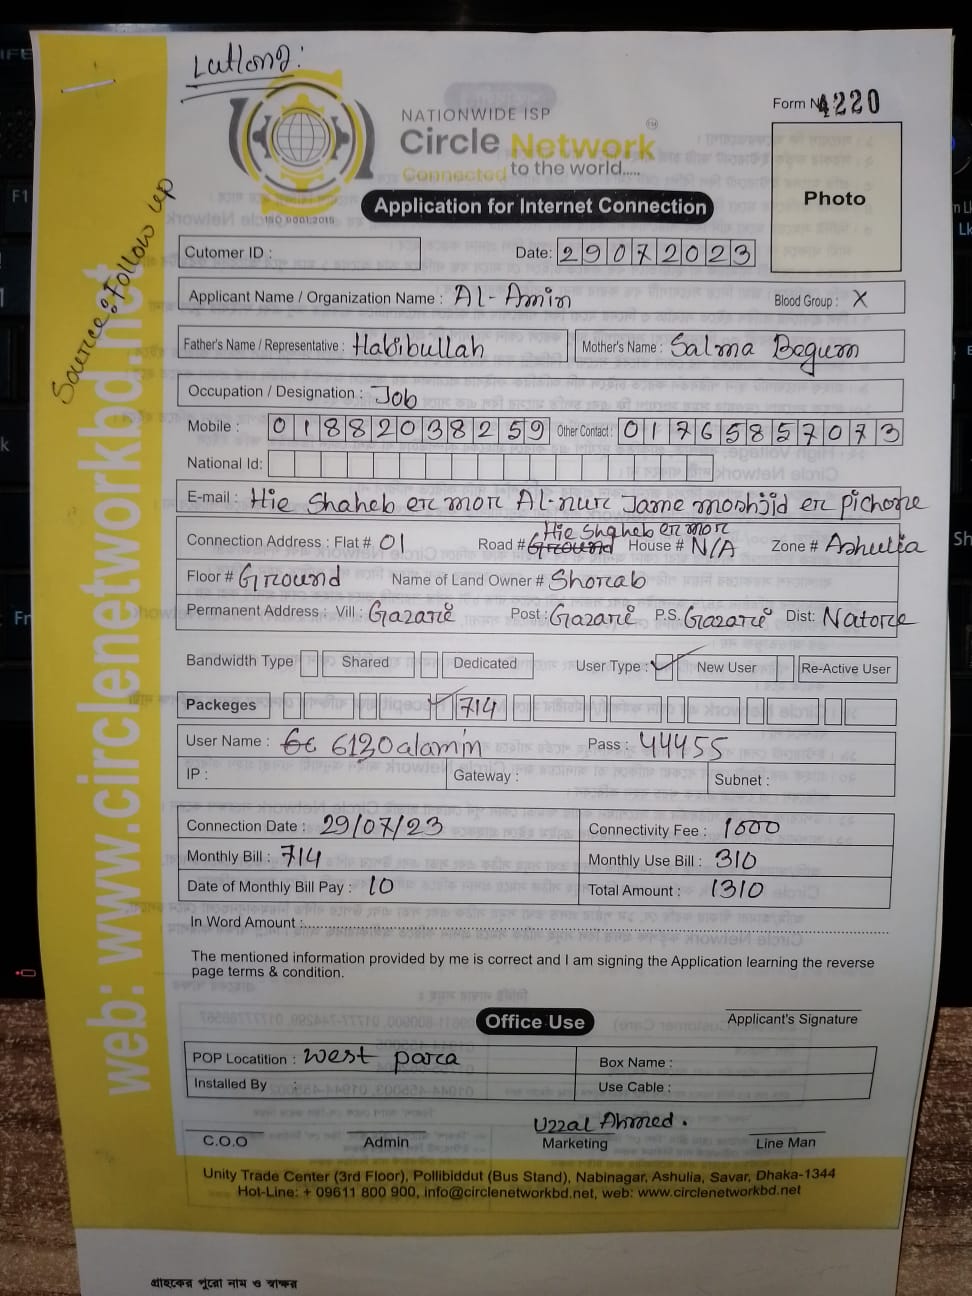 Latlong:
NATIONWIDE ISP
Form No 4220
Circle Network
Connected to the world.....
ISO 9001:2015
Application for Internet Connection
Photo
Source: Follow up
web: www.circlenetworkbd.net
Cutomer ID :
Date: 29072023
Applicant Name / Organization Name : Al-Amin
Blood Group : X
Father's Name / Representative : Habibullah
Mother's Name : Salma Begum
Occupation / Designation : Job
Mobile : 01882038259 Other Contact : 01765857073
National Id:
E-mail : Hie Shaheb er mor Al-nur Jame moshjid er pichone
Hie Shaheb er mor
Connection Address : Flat # 01 Road # Ground House # N/A Zone # Ashulia
Floor # Ground Name of Land Owner # Shorab
Permanent Address : Vill : Gazari Post : Gazari P.S. Gazari Dist: Natore
Bandwidth Type Shared Dedicated User Type : New User Re-Active User
Packeges 714
User Name : 6120alamin Pass : 44455
IP : Gateway : Subnet :
Connection Date : 29/07/23 Connectivity Fee : 1000
Monthly Bill : 714 Monthly Use Bill : 310
Date of Monthly Bill Pay : 10 Total Amount : 1310
In Word Amount :
The mentioned information provided by me is correct and I am signing the Application learning the reverse
page terms & condition.
Applicant's Signature
Office Use
POP Locatition : West para Box Name :
Installed By : Use Cable :
Uzzal Ahmed.
C.O.O Admin Marketing Line Man
Unity Trade Center (3rd Floor), Pollibiddut (Bus Stand), Nabinagar, Ashulia, Savar, Dhaka-1344
Hot-Line: + 09611 800 900, info@circlenetworkbd.net, web: www.circlenetworkbd.net
গ্রাহকের পুরো নাম ও স্বাক্ষর